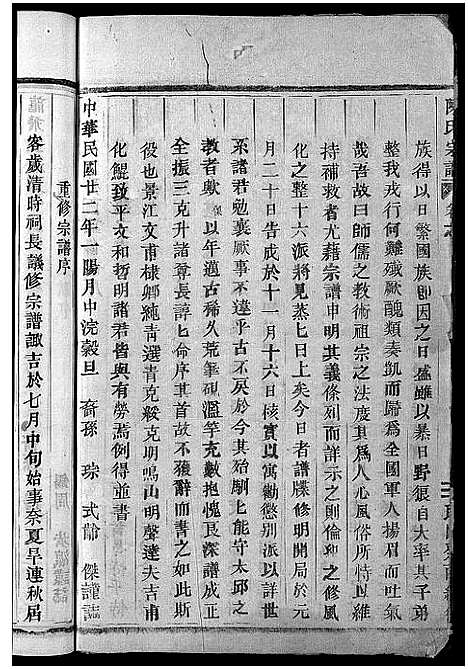 陳氏宗譜
族得以日繁國族即因之日盛雖以暴日野狠自大率其子弟
整我戎行何難殲厥醜類奏凱而歸為全國軍人揚眉而吐氣
哉吾故曰師儒之教術祖宗之法度其為人心風俗所恃以維
持補救者尤藉宗譜申明其義條列而詳示之則倫如之修風
化之整十六派將見蒸七日上矣今日者譜牒修明開局於元
月二十日告成於十一月十六日核實以寓勸懲別派以詳世
系諸君勉襄厥事不遑乎古不戾於始馴上能守太邱之
教者歟 以年邁古稀久荒筆硯濫竽充數抱愧良深譜成
全振三克升諸尊長諄七命序其首故不獲辭而書之如此斯
役也景江文甫棣卿純青選青克毅克明鳴山明聲達夫吉甫
化鯤致平文和哲明諸君皆與有勞焉例得並書
中華民國廿二年一陽月中浣穀旦 裔孫 琮 式僃 傑謹誌
重修宗譜序
客歲清時祠長議修宗譜諏吉於七月中旬始事奈夏旱連秋居